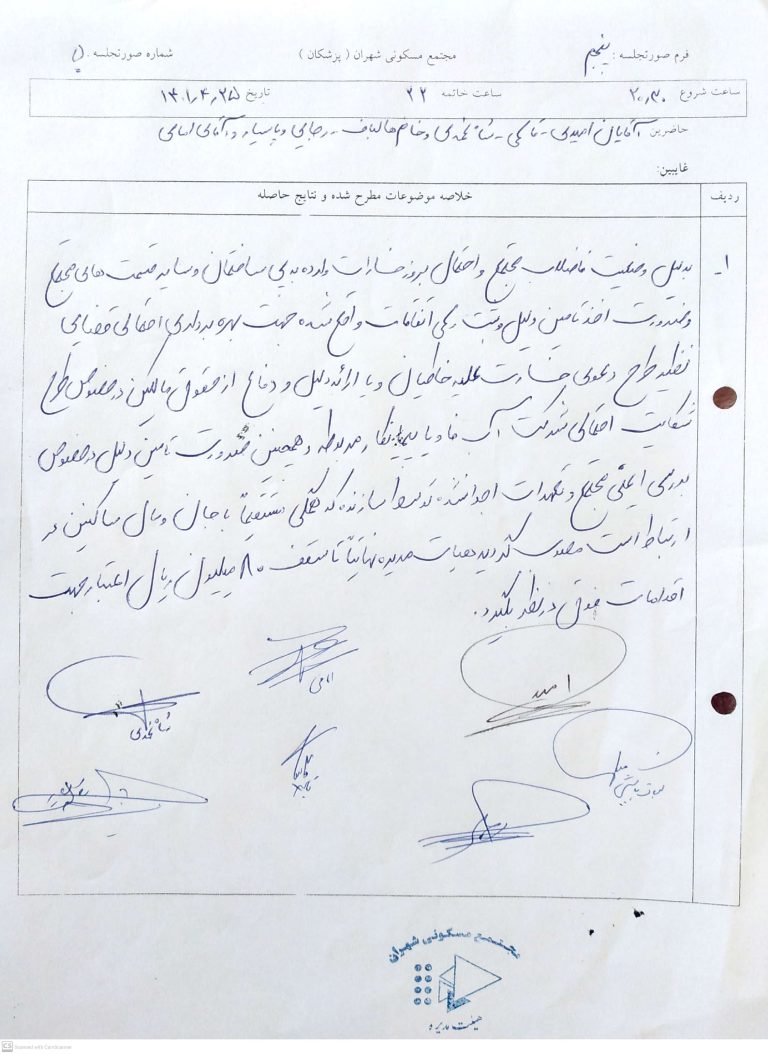 فرم صورتجلسه : پنجم
مجتمع مسکونی شهران ( پزشکان )
شماره صورتجلسه : (۱)
ساعت شروع ۲۰،۳۰
ساعت خاتمه ۲۲
تاریخ ۱۴۰۱،۴،۲۵
حاضرین : آقایان امیدی - خاکی - شاه محمدی و خانم ها لباف - رجایی و پاسیار و آقای امامی
غایبین:
ردیف
خلاصه موضوعات مطرح شده و نتایج حاصله
۱- بدلیل وضعیت فاضلاب مجتمع و احتمال بروز خسارات وارده به پی ساختمان و سایر قسمت های مجتمع
و ضرورت اخذ تامین دلیل و ثبت رسمی اتفاقات واقع شده جهت بهره برداری احتمالی قضایی
نظیر طرح دعوی خسارت علیه خاطیان و یا ارائه دلیل و دفاع از حقوق مالکین در خصوص طرح
شکایت احتمالی شرکت آب فا و یا پیمانکار مربوطه و همچنین ضرورت تامین دلیل در خصوص
بررسی ایمنی مجتمع و تعهدات اجرا نشده توسط سازنده که همگی مستقیماً با جان و مال ساکنین در
ارتباط است مصوب گردید هیات مدیره نهایتاً تا سقف ۸۰ میلیون ریال اعتبار جهت
اقدامات فوق در نظر بگیرد.
امیدی
امامی
شاه محمدی
مجتمع مسکونی شهران
هیئت مدیره
CS Scanned with CamScanner